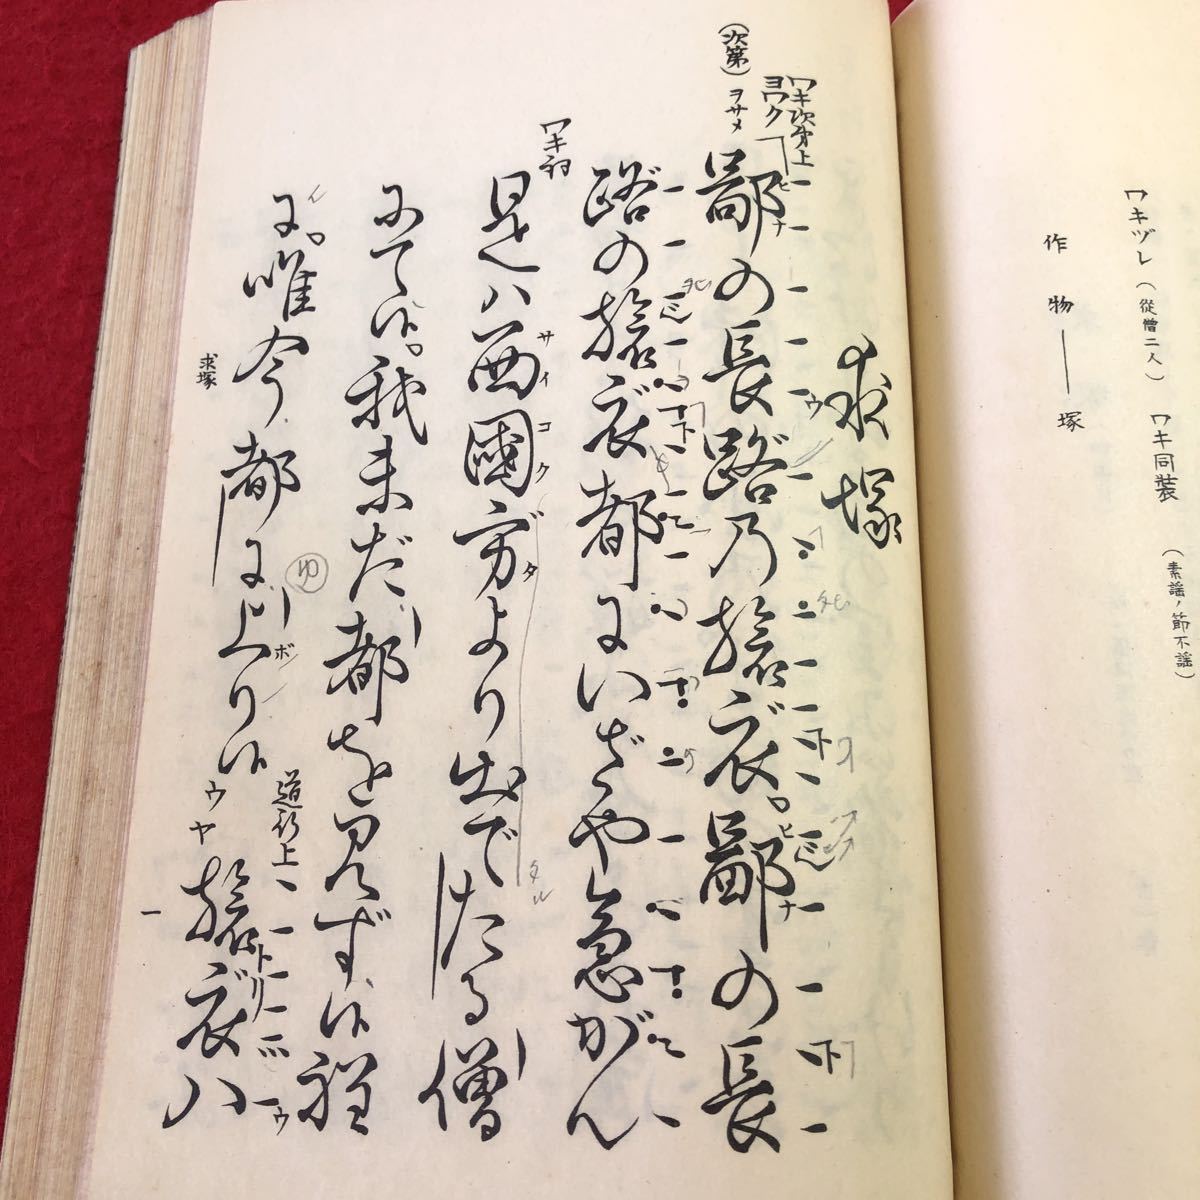 ワキヅレ（從僧二人） ワキ同裝（素謠ノ節不謠）
作物――塚
求塚
ワキ次第上
ヨワク
（次第）ヲサメ
鄙の長路乃旅衣。鄙の長
路の旅衣都にいざや急がん
ワキ詞
是ハ西國方より出でたる僧
サイコク ガタ
にて候。我未だ都を見ず候程
に。唯今都に上り候
ゆ
ボ
道行上
ウヤ
旅衣ハ
求塚
一